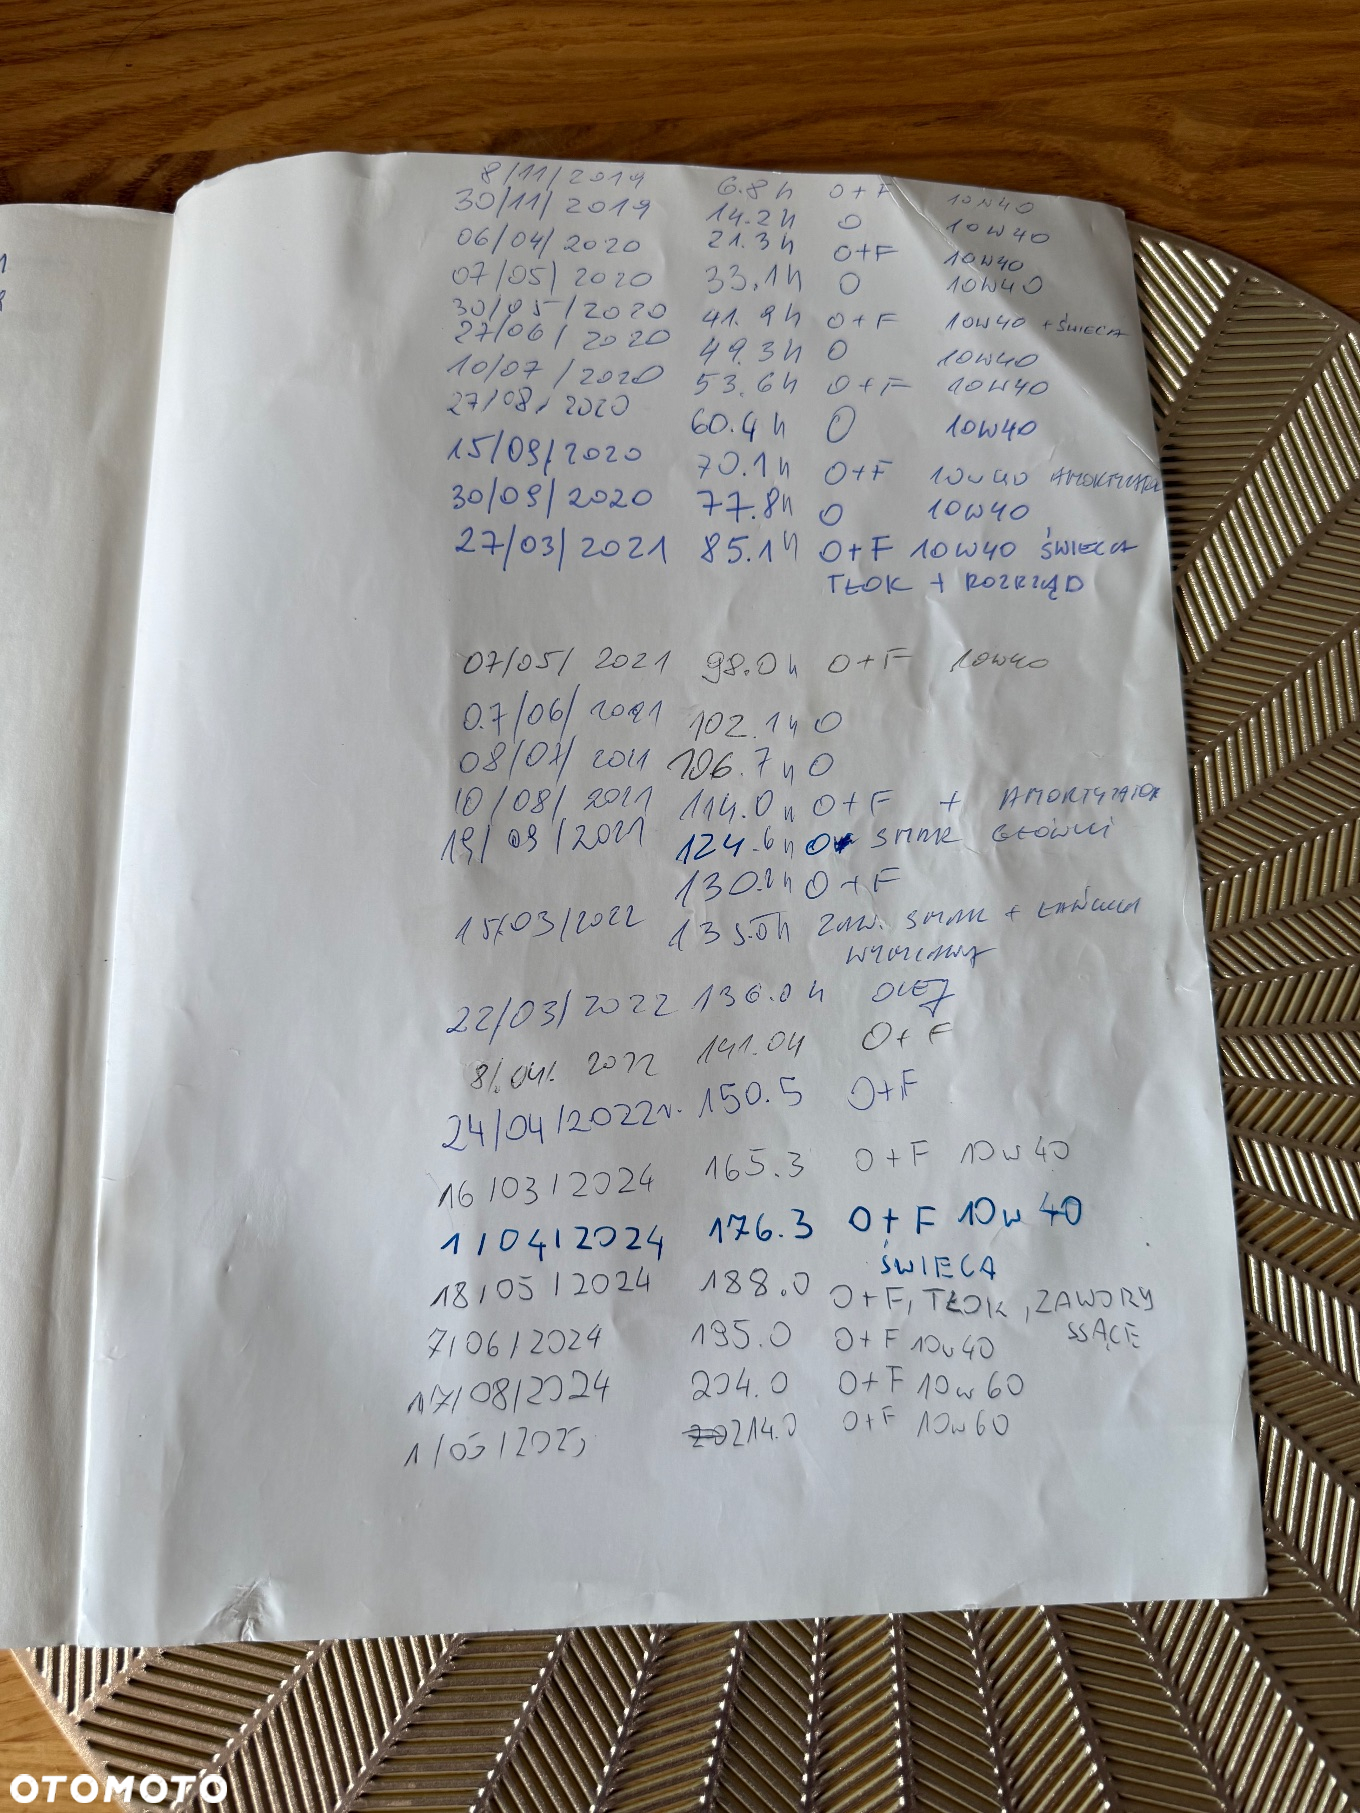 8/11/2019 6.8h O+F 10W40
30/11/2019 14.2h O 10W40
06/04/2020 21.3h O+F 10W40
07/05/2020 33.1h O 10W40
30/05/2020 41.9h O+F 10W40 + ŚWIECA
27/06/2020 49.3h O 10W40
10/07/2020 53.6h O+F 10W40
27/08/2020 60.4h O 10W40
15/09/2020 70.1h O+F 10W40
30/09/2020 77.8h O 10W40
27/03/2021 85.1h O+F 10W40 ŚWIECA
TŁOK + ROZRZĄD
07/05/2021 98.0h O+F 10W40
07/06/2021 102.1h O
08/07/2021 106.7h O
10/08/2021 114.0h O+F + AMORTYZATOR
19/09/2021 124.6h O SMAR GŁÓWKI
130.2h O+F
15/03/2022 135.0h SMAR +
22/03/2022 136.0h OLEJ
8/04/2022 141.0h O+F
24/04/2022r. 150.5 O+F
16/03/2024 165.3 O+F 10W40
1/04/2024 176.3 O+F 10W40
ŚWIECA
18/05/2024 188.0 O+F, TŁOK, ZAWORY
SSĄCE
7/06/2024 195.0 O+F 10W40
17/08/2024 204.0 O+F 10W60
214.0 O+F 10W60
OTOMOTO